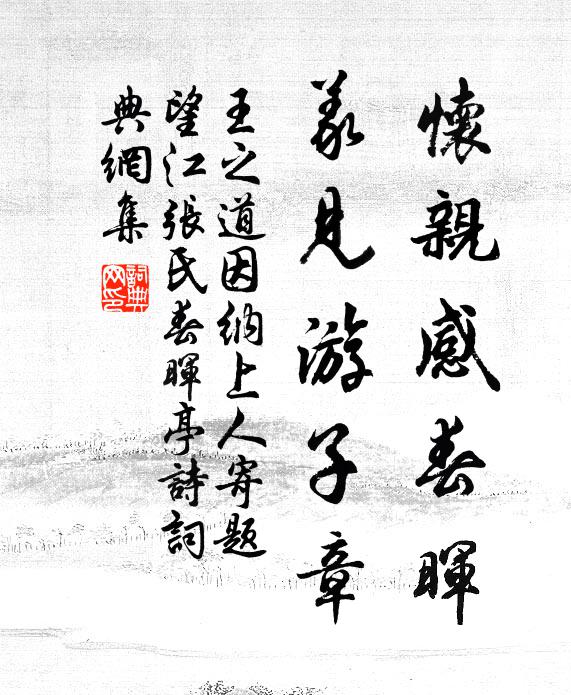 懷親感春暉
義見游子章
王之道因納上人寄題
望江張氏春暉亭詩詞
典網集
詞典
网印